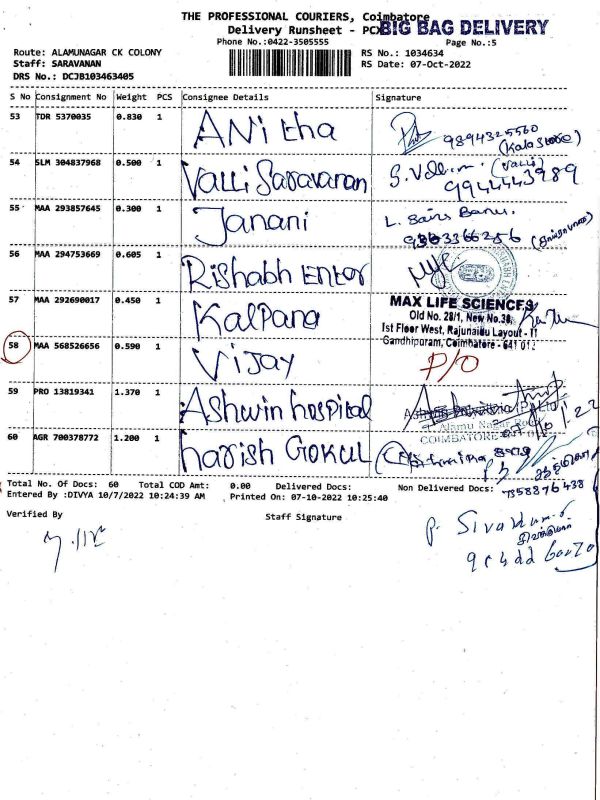 THE PROFESSIONAL COURIERS, Coimbatore
Delivery Runsheet - PCX BIG BAG DELIVERY
Phone No.:0422-3505555
Page No.:5
Route: ALAMUNAGAR CK COLONY
RS No.: 1034634
Staff: SARAVANAN
RS Date: 07-Oct-2022
DRS No.: DCJB103463405
S No Consignment No Weight PCS Consignee Details Signature
53 TDR 5370035 0.830 1 ANitha
9894325560
(Kala store)
54 SLM 304837968 0.500 1 Valli Saravanan
(Valli)
9944443989
55 MAA 293857645 0.300 1 Janani
L. Sairs Banu.
56 MAA 294753669 0.605 1 Rishabh Enter
57 MAA 292690017 0.450 1 Kalpana
MAX LIFE SCIENCES
Old No. 28/1, New No.38,
Ist Floor West, Rajunaidu Layout - 11
Gandhipuram, Coimbatore - 641 012
58 MAA 568526656 0.590 1 Vijay
P/O
59 PRO 13819341 1.370 1 Ashwin hospital
Alamu Nagar
COIMBATORE
60 AGR 700378772 1.200 1 harish Gokul
Total No. Of Docs: 60 Total COD Amt: 0.00 Delivered Docs: Non Delivered Docs:
7358876438
Entered By :DIVYA 10/7/2022 10:24:39 AM Printed On: 07-10-2022 10:25:40
Verified By
Staff Signature
P. Sivakumar